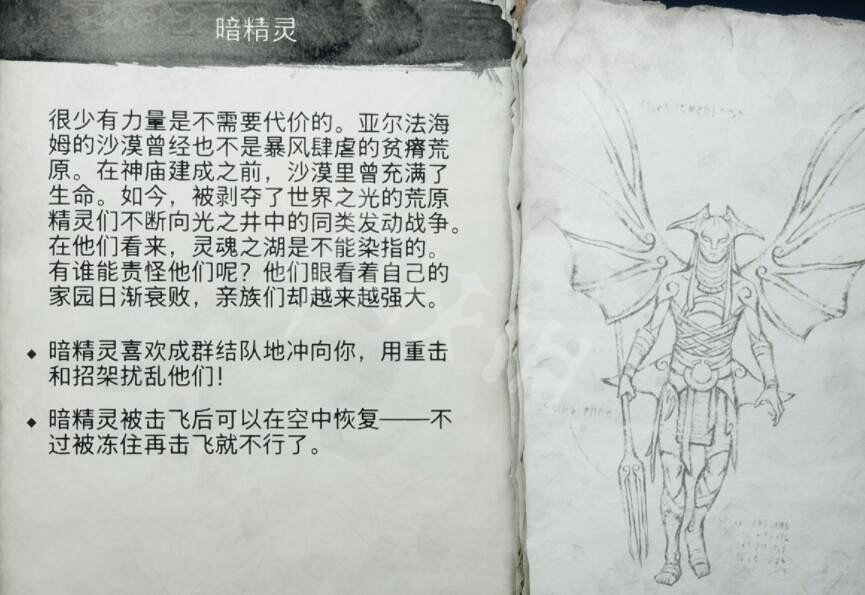 暗精灵
很少有力量是不需要代价的。亚尔法海
姆的沙漠曾经也不是暴风肆虐的贫瘠荒
原。在神庙建成之前，沙漠里曾充满了
生命。如今，被剥夺了世界之光的荒原
精灵们不断向光之井中的同类发动战争。
在他们看来，灵魂之湖是不能染指的。
有谁能责怪他们呢？他们眼看着自己的
家园日渐衰败，亲族们却越来越强大。
◆ 暗精灵喜欢成群结队地冲向你，用重击
和招架扰乱他们！
◆ 暗精灵被击飞后可以在空中恢复——不
过被冻住再击飞就不行了。